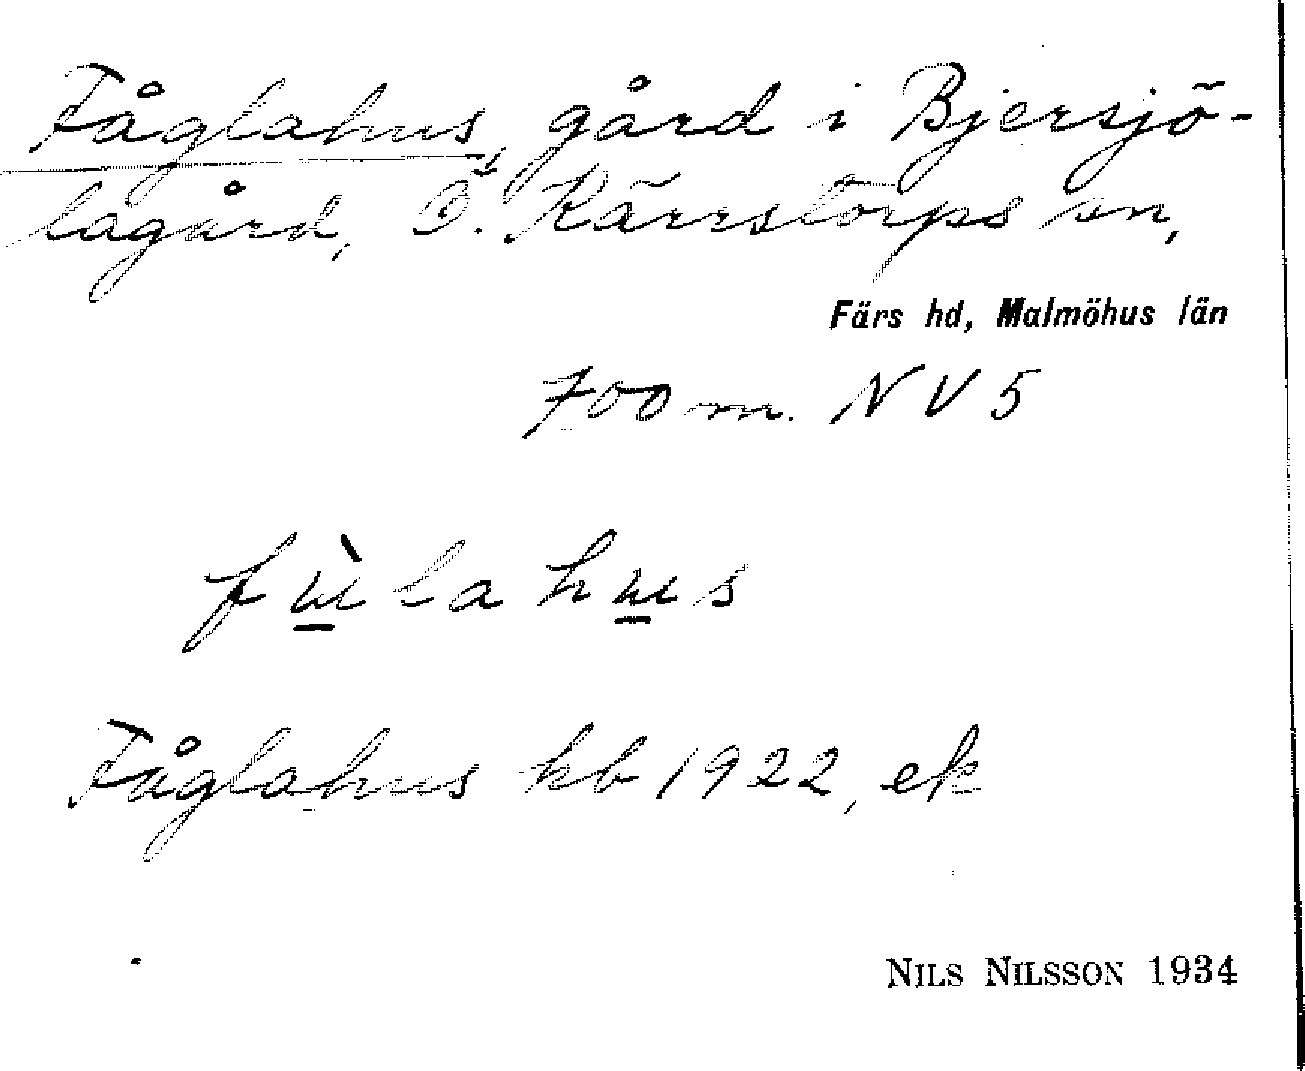 Fåglahus, gård i Bjersjö-
lagård, Ö. Kärrstorps sn,
Färs hd, Malmöhus län
700 m. NV 5
fù̱lahu̱s
Fåglahus kb 1922, ek
NILS NILSSON 1934